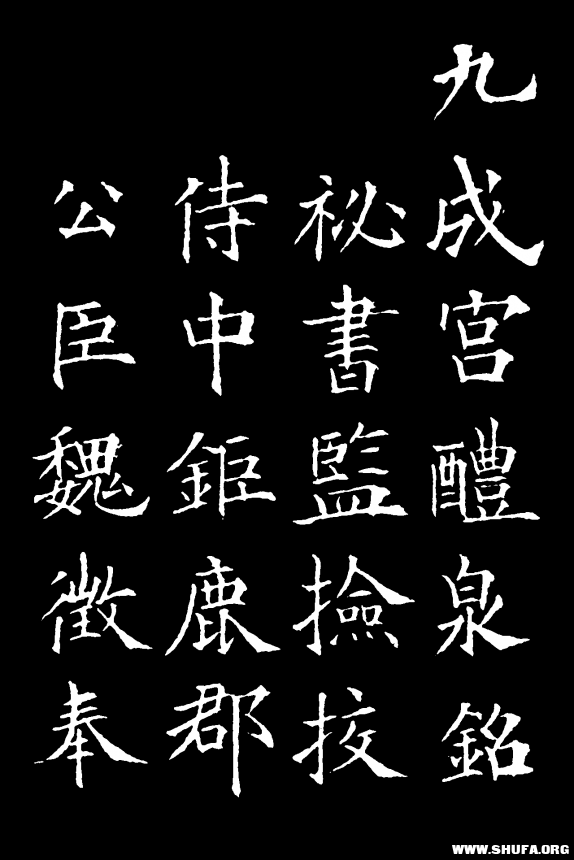 九成宮醴泉銘
祕書監撿挍
侍中鉅鹿郡
公臣魏徵奉
WWW.SHUFA.ORG